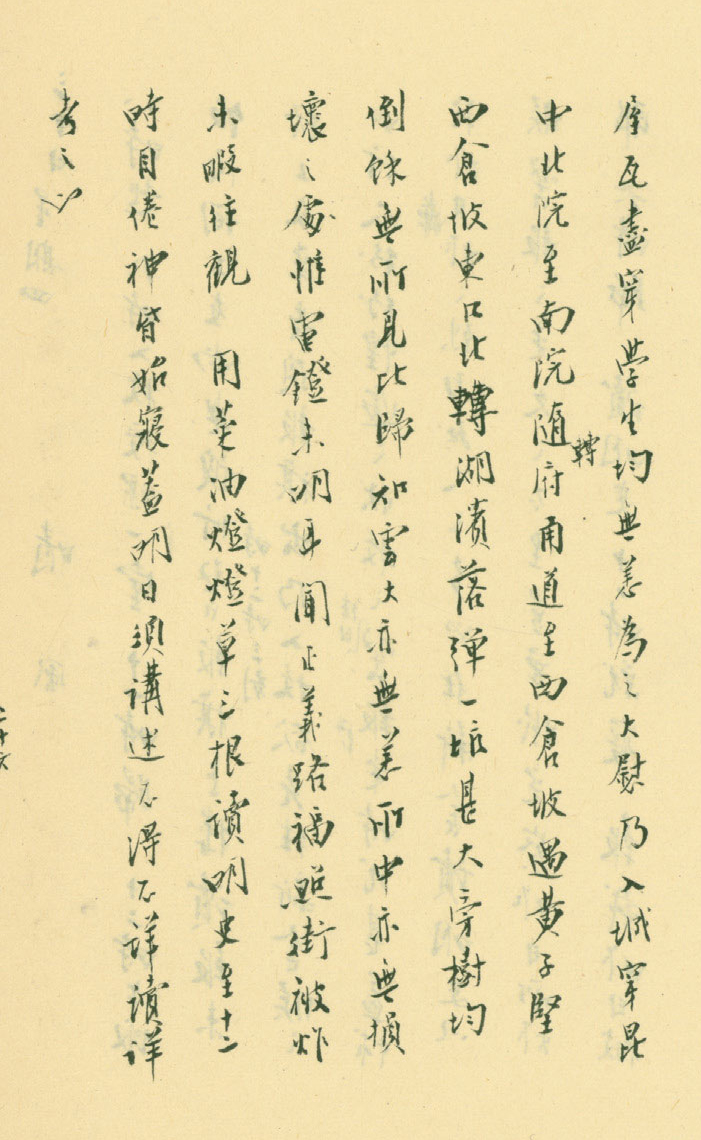 屋瓦盡穿學生均無恙為之大慰乃入城穿昆
中北院至南院隨轉府甬道至西倉坡遇黃子堅
西倉坡東口北轉湖濱落彈一坑甚大旁樹均
倒餘無所見比歸知雲大亦無恙所中亦無損
壞之處惟電鐙未明耳聞正義路福照街被炸
未暇往觀 用菜油燈燈草三根讀明史至十二
時目倦神昏始寢蓋明日須講述不得不詳讀詳
考之也
二十六